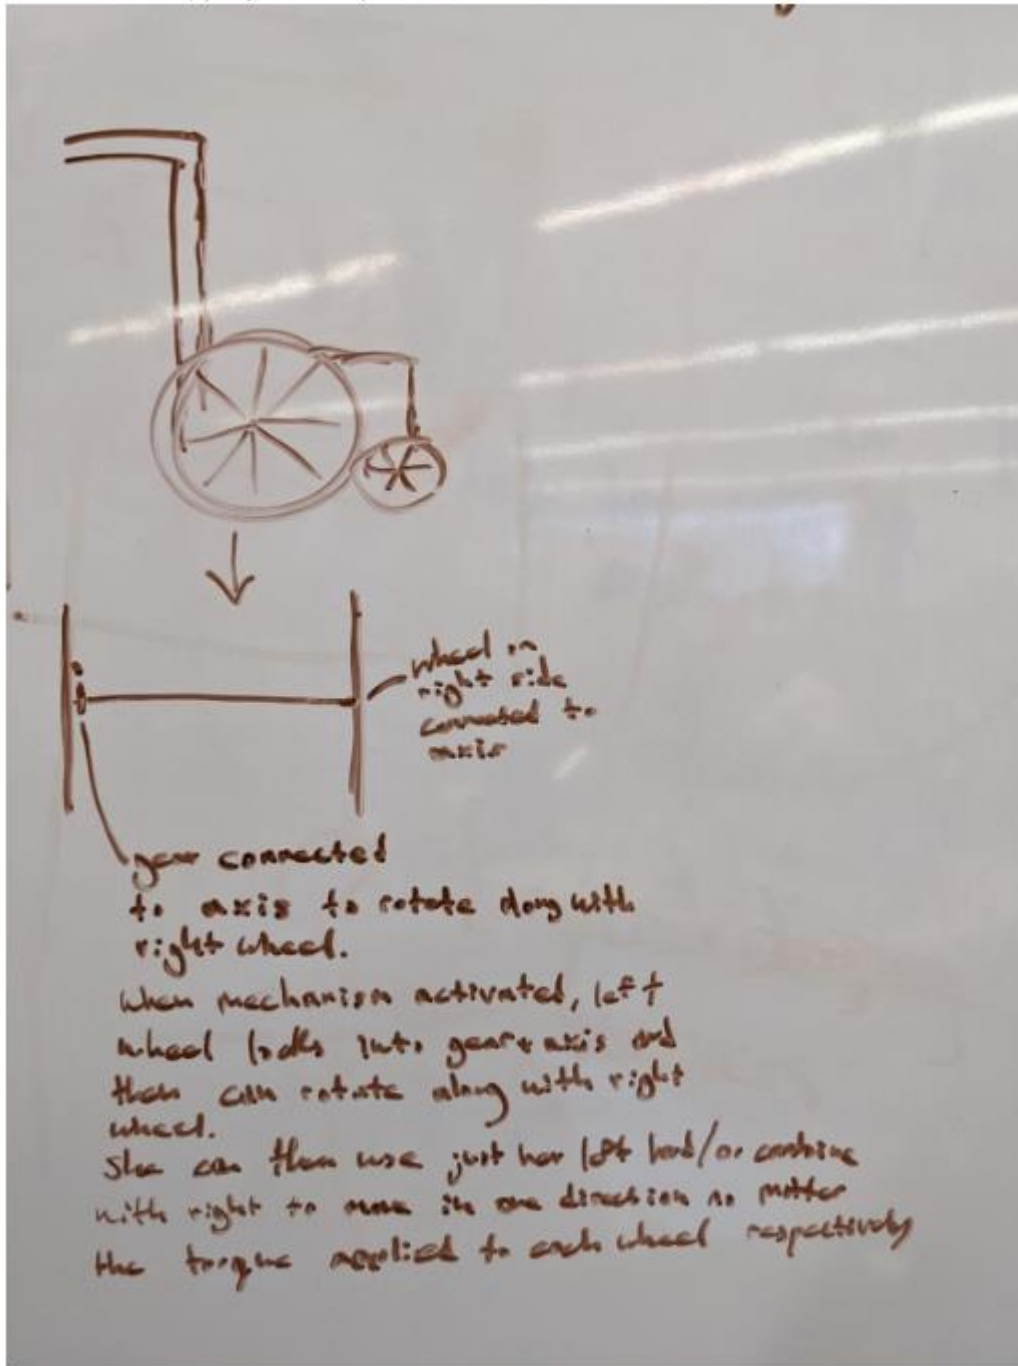 wheel on
right side
connected to
axis
gear connected
to axis to rotate along with
right wheel.
When mechanism activated, left
wheel locks into gear + axis and
then can rotate along with right
wheel.
She can then use just her left hand/or combine
with right to move in one direction no matter
the torque applied to each wheel respectively